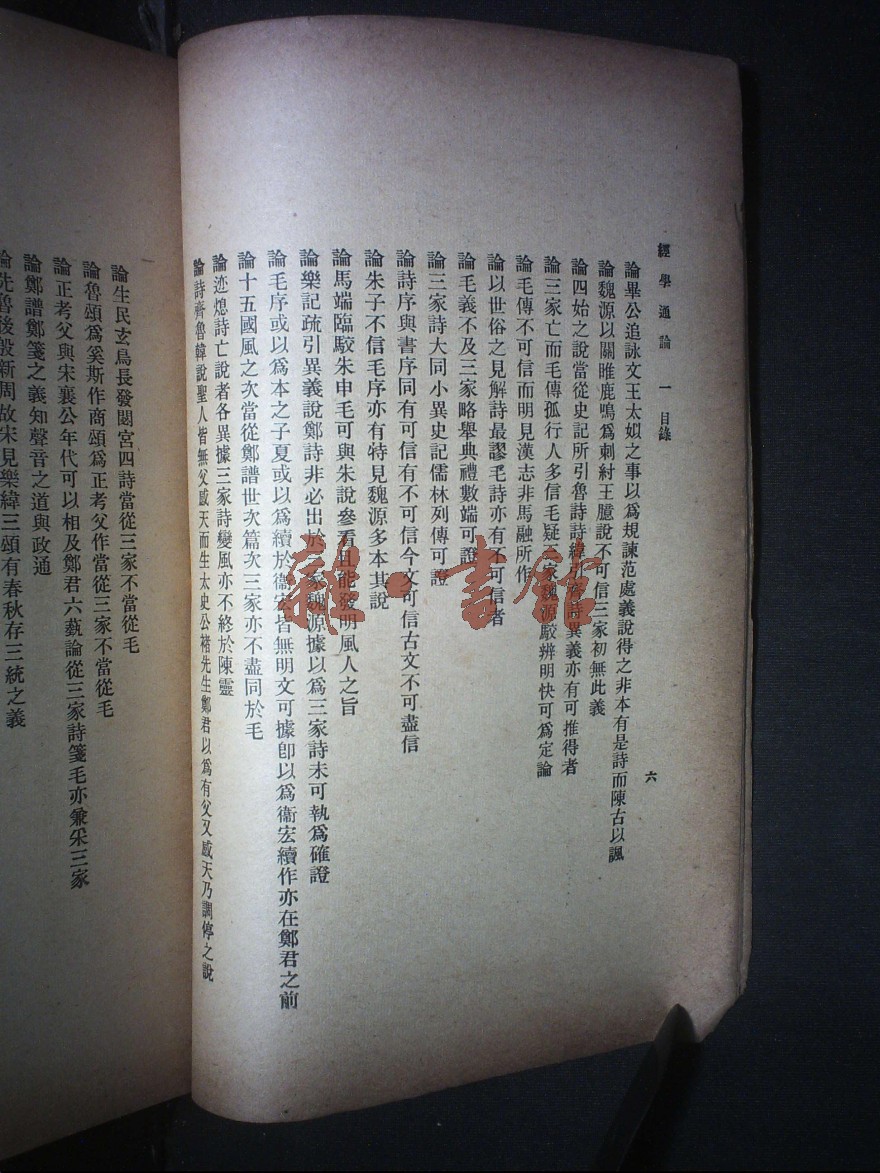 經學通論 一 目錄
六
論畢公追詠文王太姒之事以爲規諫范處義說得之非本有是詩而陳古以諷
論魏源以關雎鹿鳴爲刺紂王臆說不可信三家初無此義
論四始之說當從史記所引魯詩詩緯引齊詩異義亦有可推得者
論三家亡而毛傳孤行人多信毛疑三家魏源駁辨明快可爲定論
論毛傳不可信而明見漢志非馬融所作
論以世俗之見解詩最謬毛詩亦有不可信者
論毛義不及三家略舉典禮數端可證
論三家詩大同小異史記儒林列傳可證
論詩序與書序同有可信有不可信今文可信古文不可盡信
論朱子不信毛序亦有特見魏源多本其說
論馬端臨駁朱申毛可與朱說參看且能發明風人之旨
論樂記疏引異義說鄭詩非必出於三家魏源據以爲三家詩未可執爲確證
論毛序或以爲本之子夏或以爲續於衞宏皆無明文可據卽以爲衞宏續作亦在鄭君之前
論十五國風之次當從鄭譜世次篇次三家亦不盡同於毛
論迹熄詩亡說者各異據三家詩變風亦不終於陳靈
論詩齊魯韓說聖人皆無父感天而生太史公褚先生鄭君以爲有父又感天乃調停之說
論生民玄鳥長發閟宮四詩當從三家不當從毛
論魯頌爲奚斯作商頌爲正考父作當從三家不當從毛
論正考父與宋襄公年代可以相及鄭君六藝論從三家詩箋毛亦兼采三家
論鄭譜鄭箋之義知聲音之道與政通
論先魯後殷新周故宋見樂緯三頌有春秋存三統之義
雜·書館